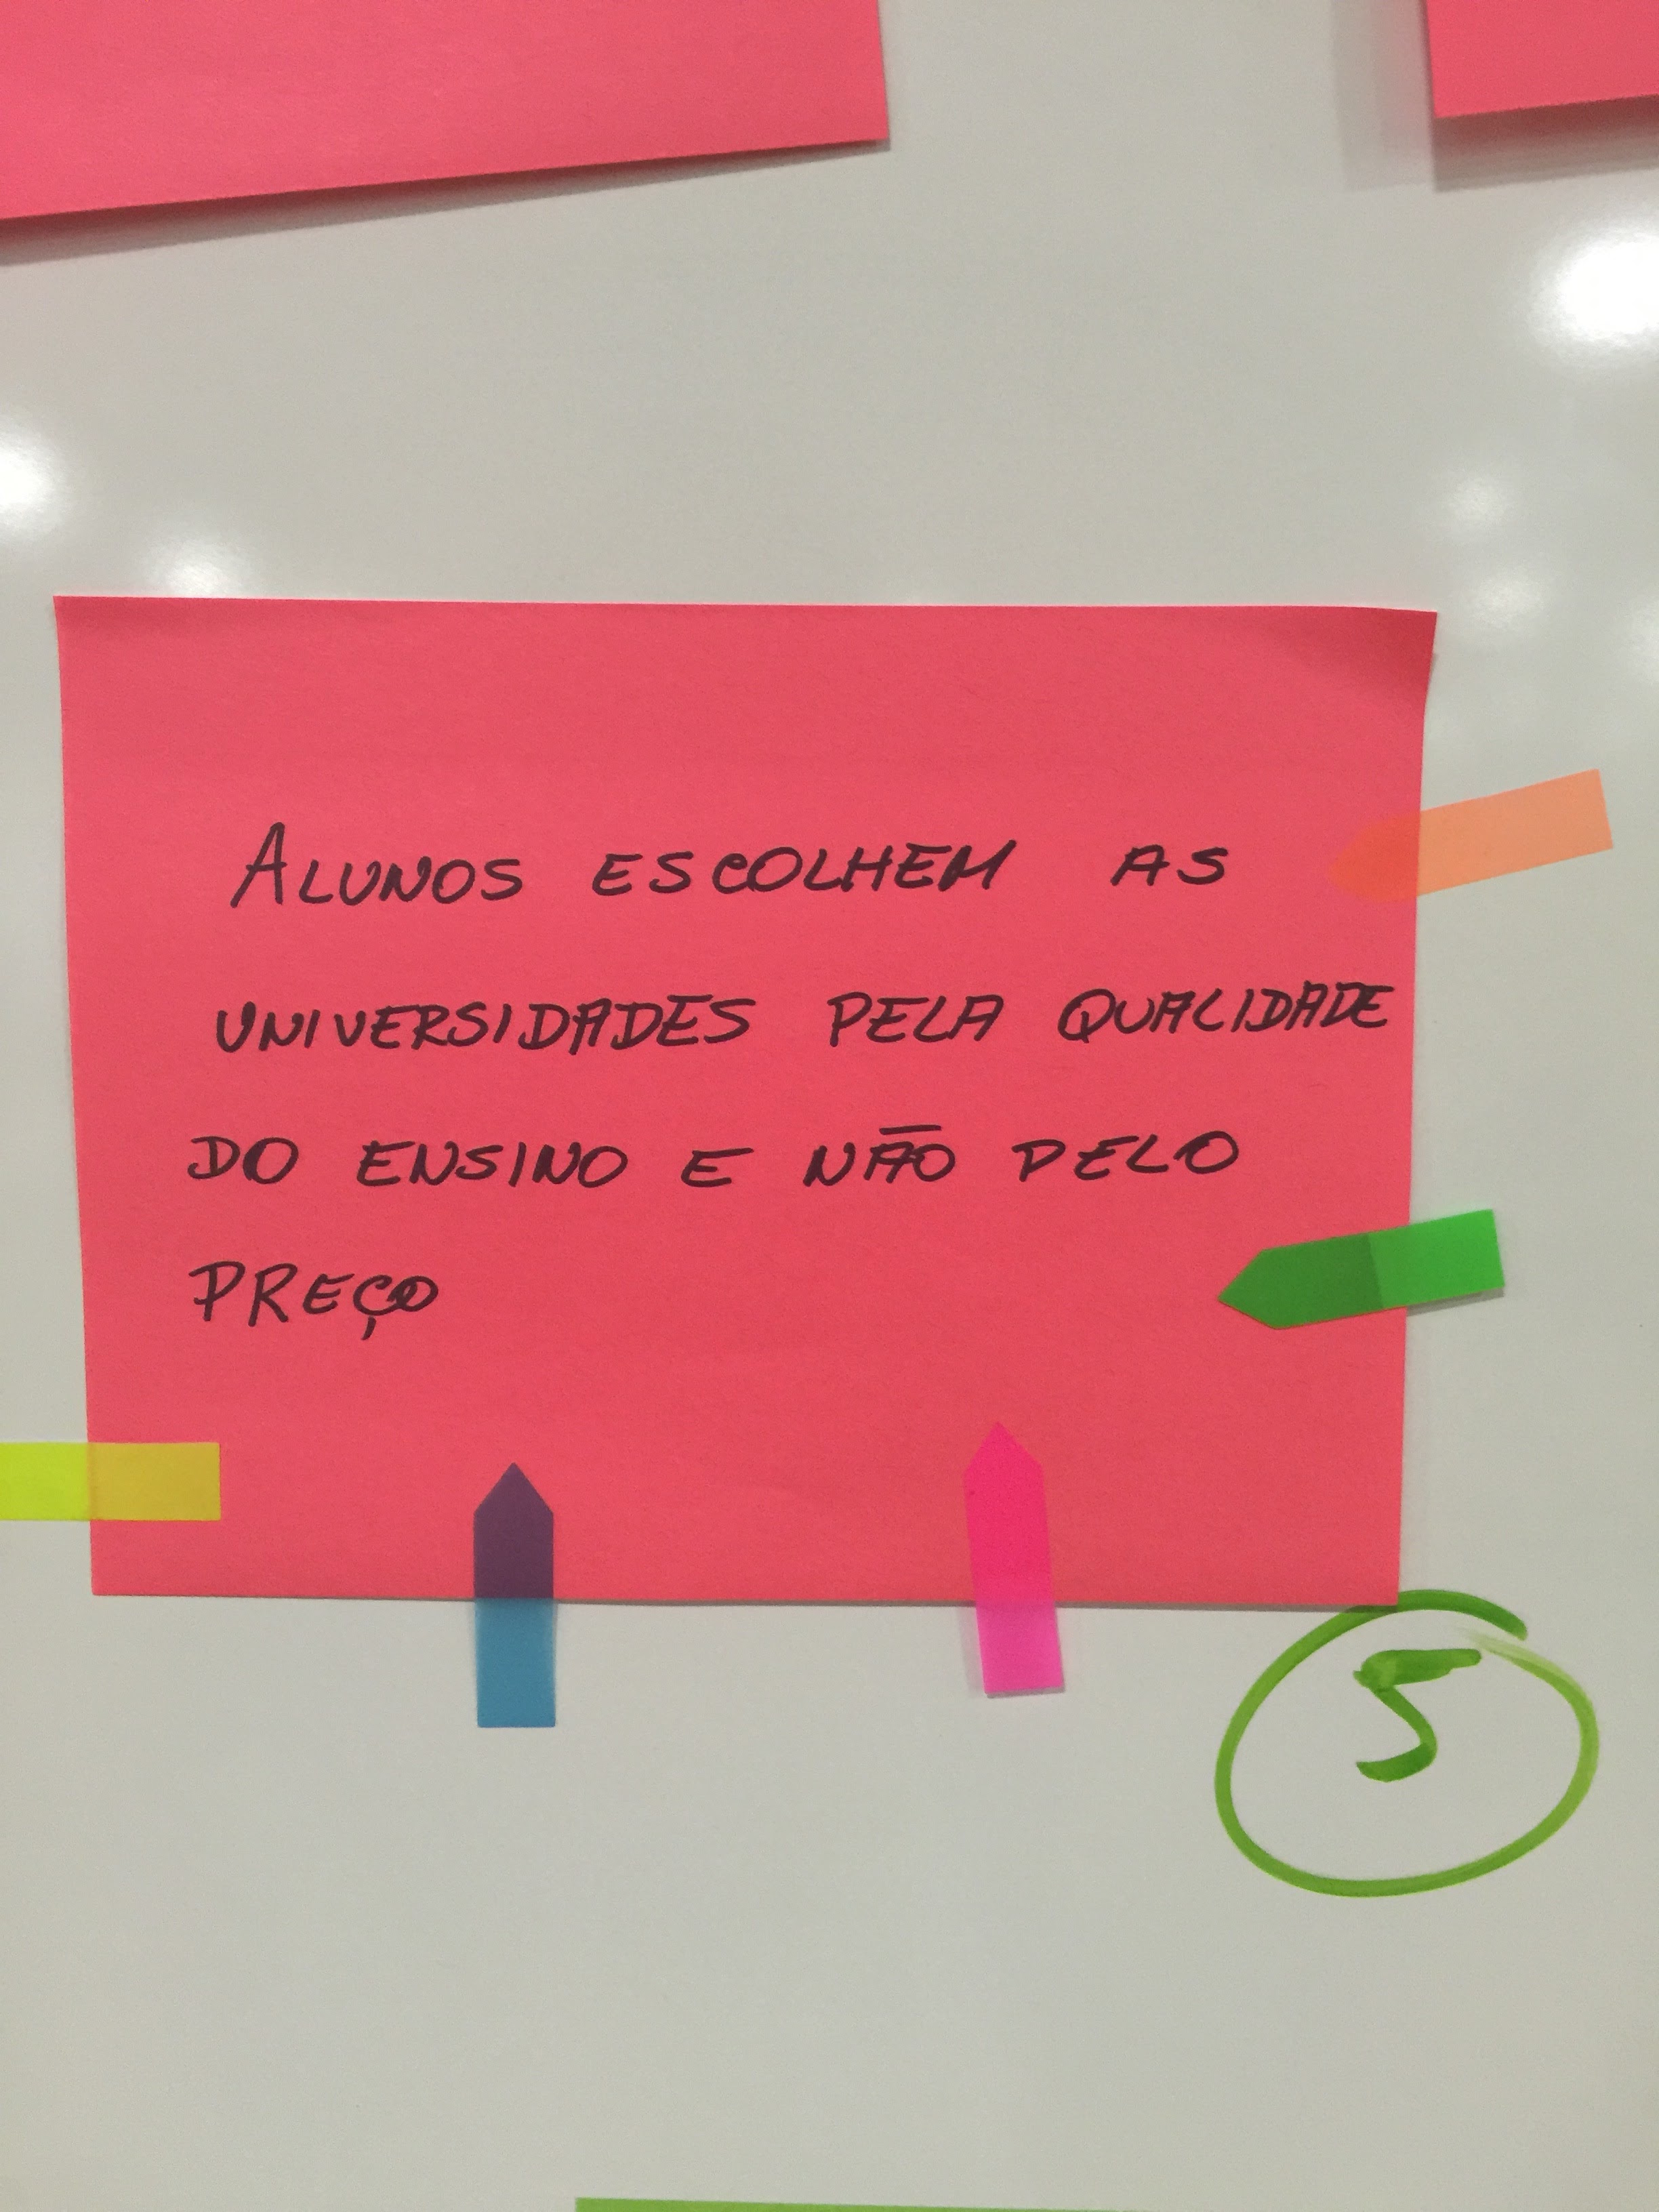 ALUNOS ESCOLHEM AS
UNIVERSIDADES PELA QUALIDADE
DO ENSINO E NÃO PELO
PREÇO
5